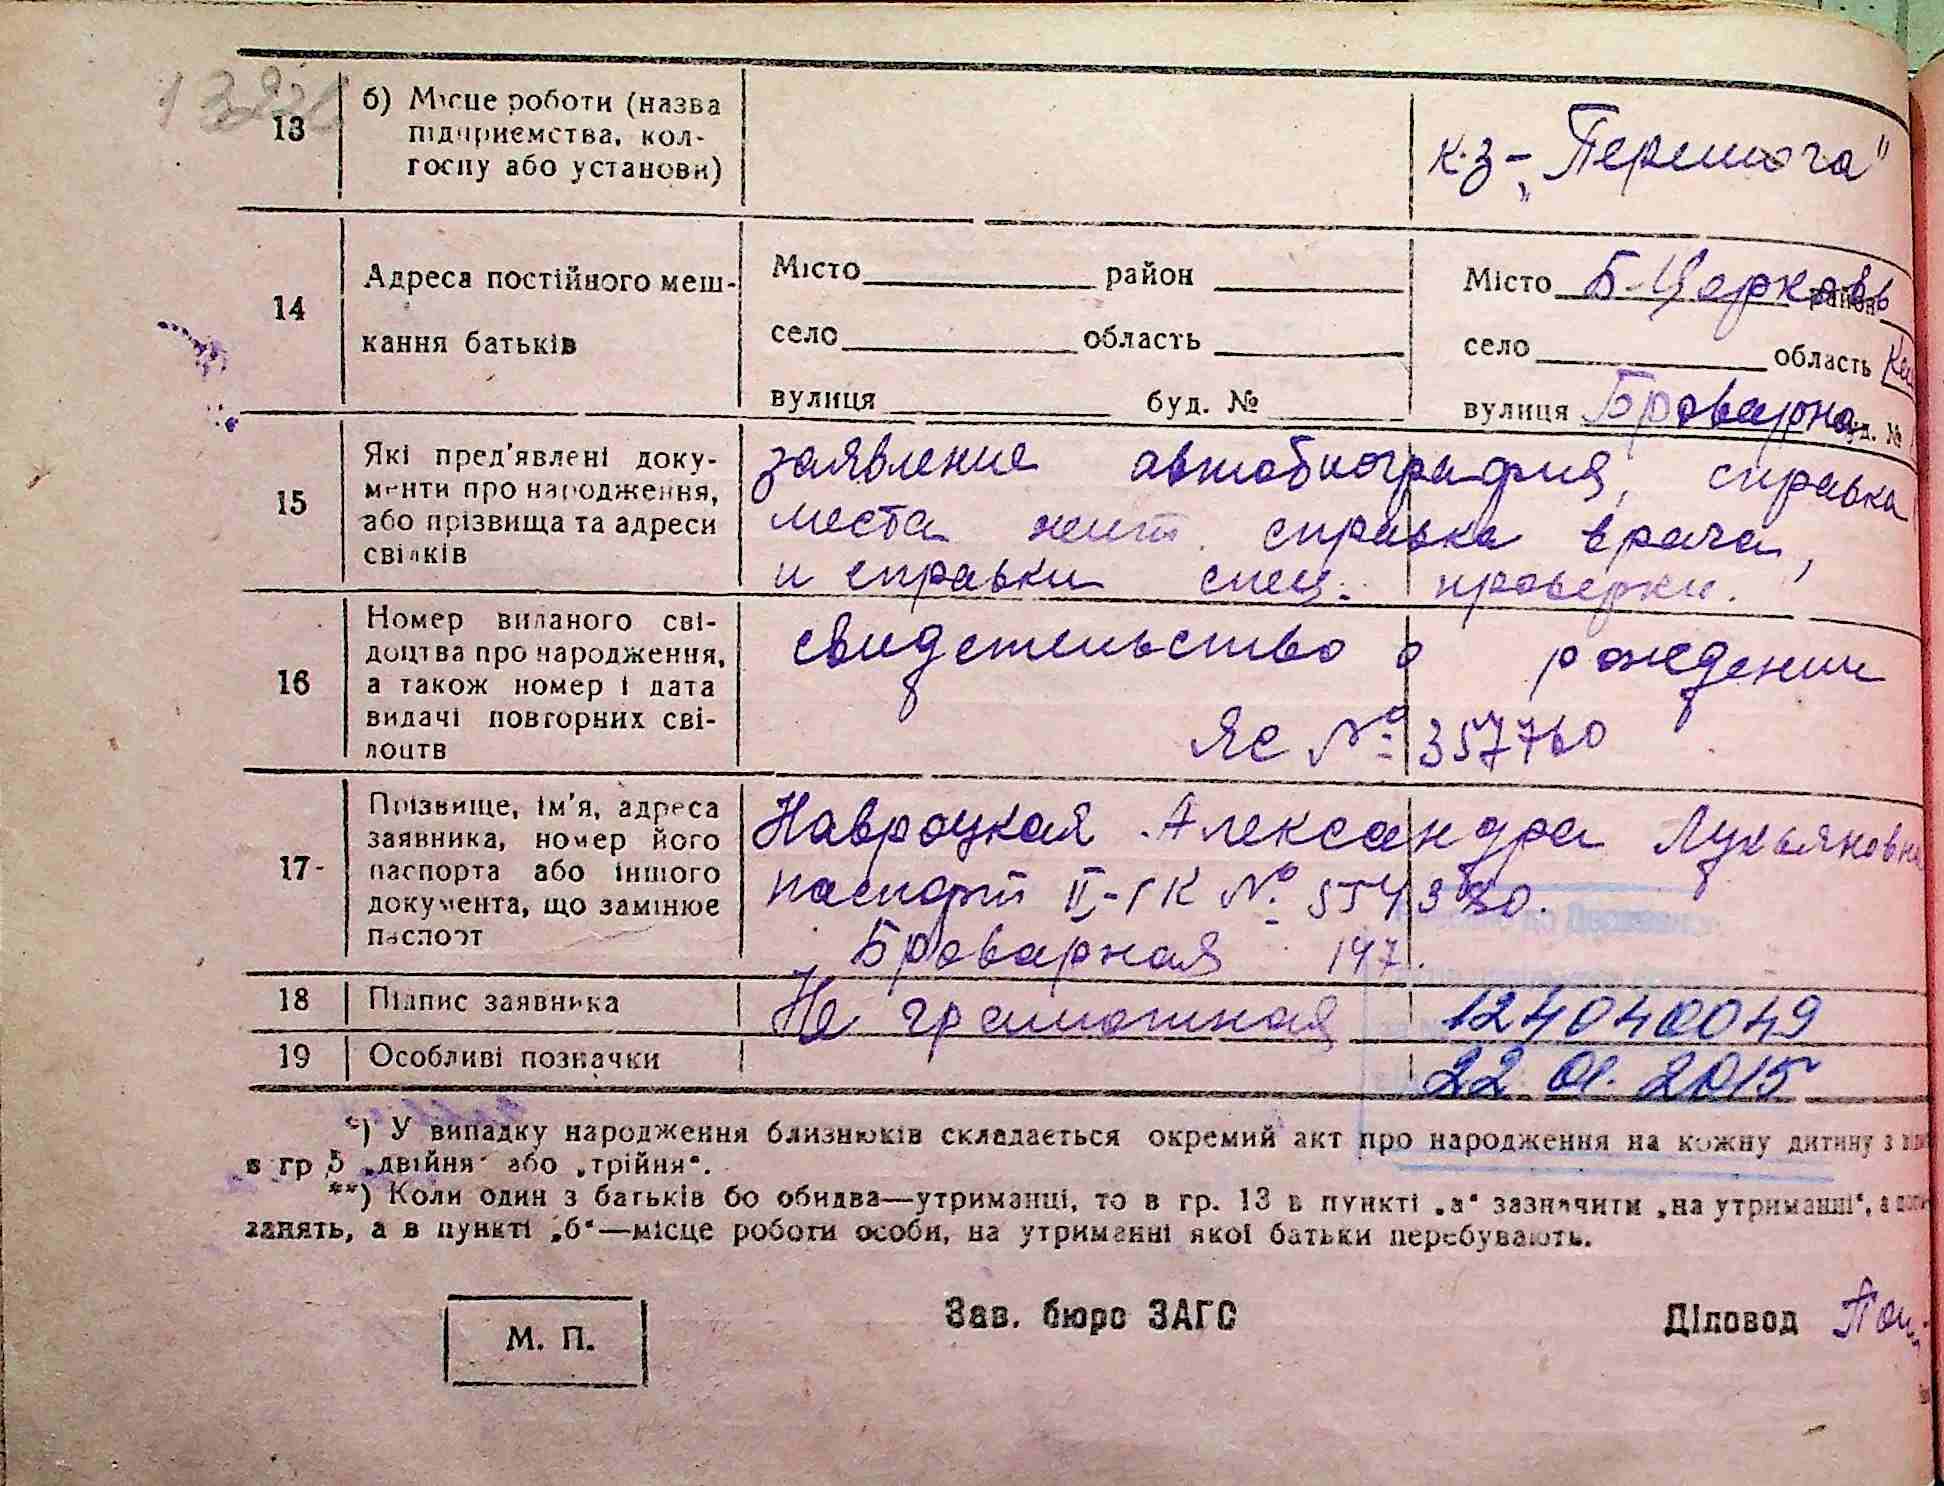 13
б) Місце роботи (назва
підприємства, кол-
госпу або установи)
к-з - „Перемога"
14
Адреса постійного меш-
кання батьків
Місто район
село область
вулиця буд. №
Місто Б-Церковь район
село область
вулиця Броварна буд. №
15
Які пред'явлені доку-
менти про народження,
або прізвища та адреси
свідків
заявление автобиография, справка
места жит. справка врача,
и справки спец. проверки.
16
Номер виданого сві-
доцтва про народження,
а також номер і дата
видачі повторних сві-
доцтв
свидетельство о рождении
ЯС № 357760
17
Прізвище, ім'я, адреса
заявника, номер його
паспорта або іншого
документа, що замінює
паспорт
Навроцкая Александра Лукьяновна
паспорт II-ГК №
Броварная 147.
18
Підпис заявника
Не грамотная
19
Особливі позначки
22.01.2015
*) У випадку народження близнюків складається окремий акт про народження на кожну дитину з
в гр 5 „двійня" або „трійня".
**) Коли один з батьків бо обидва—утриманці, то в гр. 13 в пункті „а" зазначити „на утриманні", а
занять, а в пункті „б"—місце роботи особи, на утриманні якої батьки перебувають.
М. П.
Зав. бюро ЗАГС
Діловод